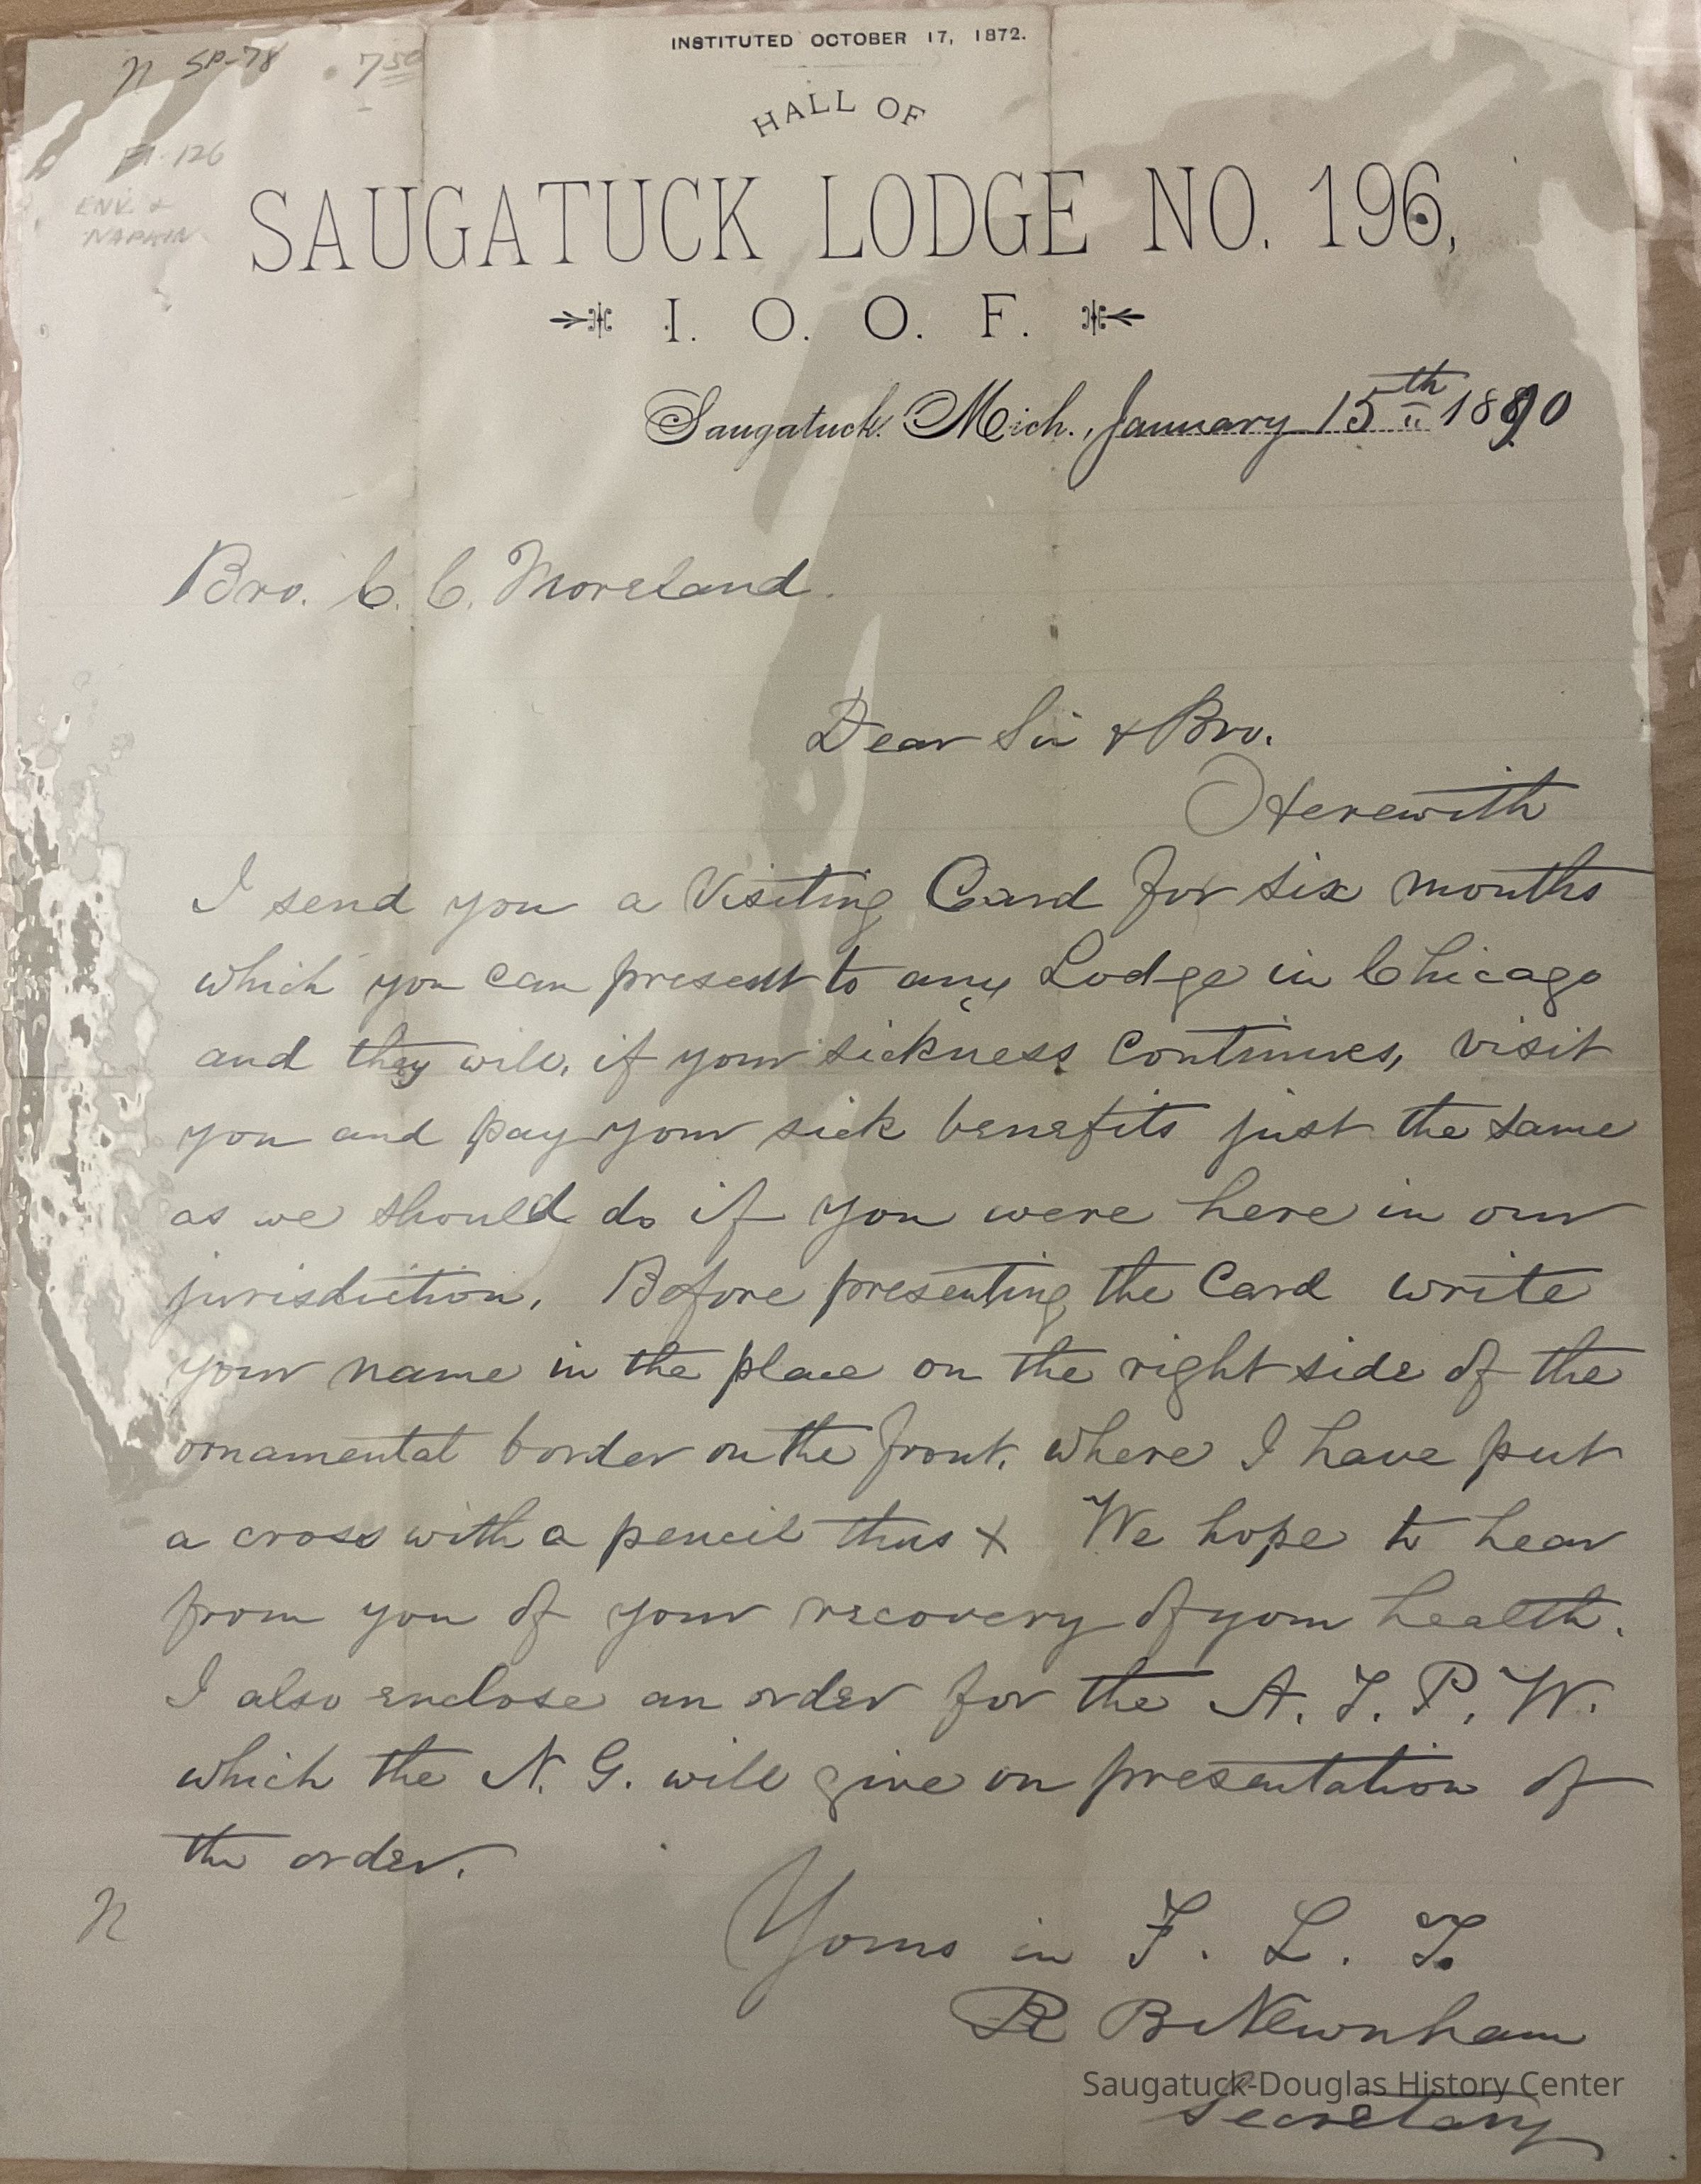 n SP-78 . 7.50
INSTITUTED OCTOBER 17, 1872.
HALL OF
126
ENV. &
NAPKIN
SAUGATUCK LODGE NO. 196,
I. O. O. F.
Saugatuck. Mich., January 15th 1890
Bro. C. C. Moreland.
Dear Sir & Bro.
Herewith
I send you a Visiting Card for six months
which you can present to any Lodge in Chicago
and they will, if your sickness continues, visit
you and pay your sick benefits just the same
as we should do if you were here in our
jurisdiction. Before presenting the Card write
your name in the place on the right side of the
ornamental border on the front, where I have put
a cross with a pencil thus X We hope to hear
from you of your recovery of your health.
I also enclose an order for the A. T. P. W.
which the N. G. will give on presentation of
the order.
n
Yours in F. L. T.
R B Newnham
Saugatuck-Douglas History Center
Secretary